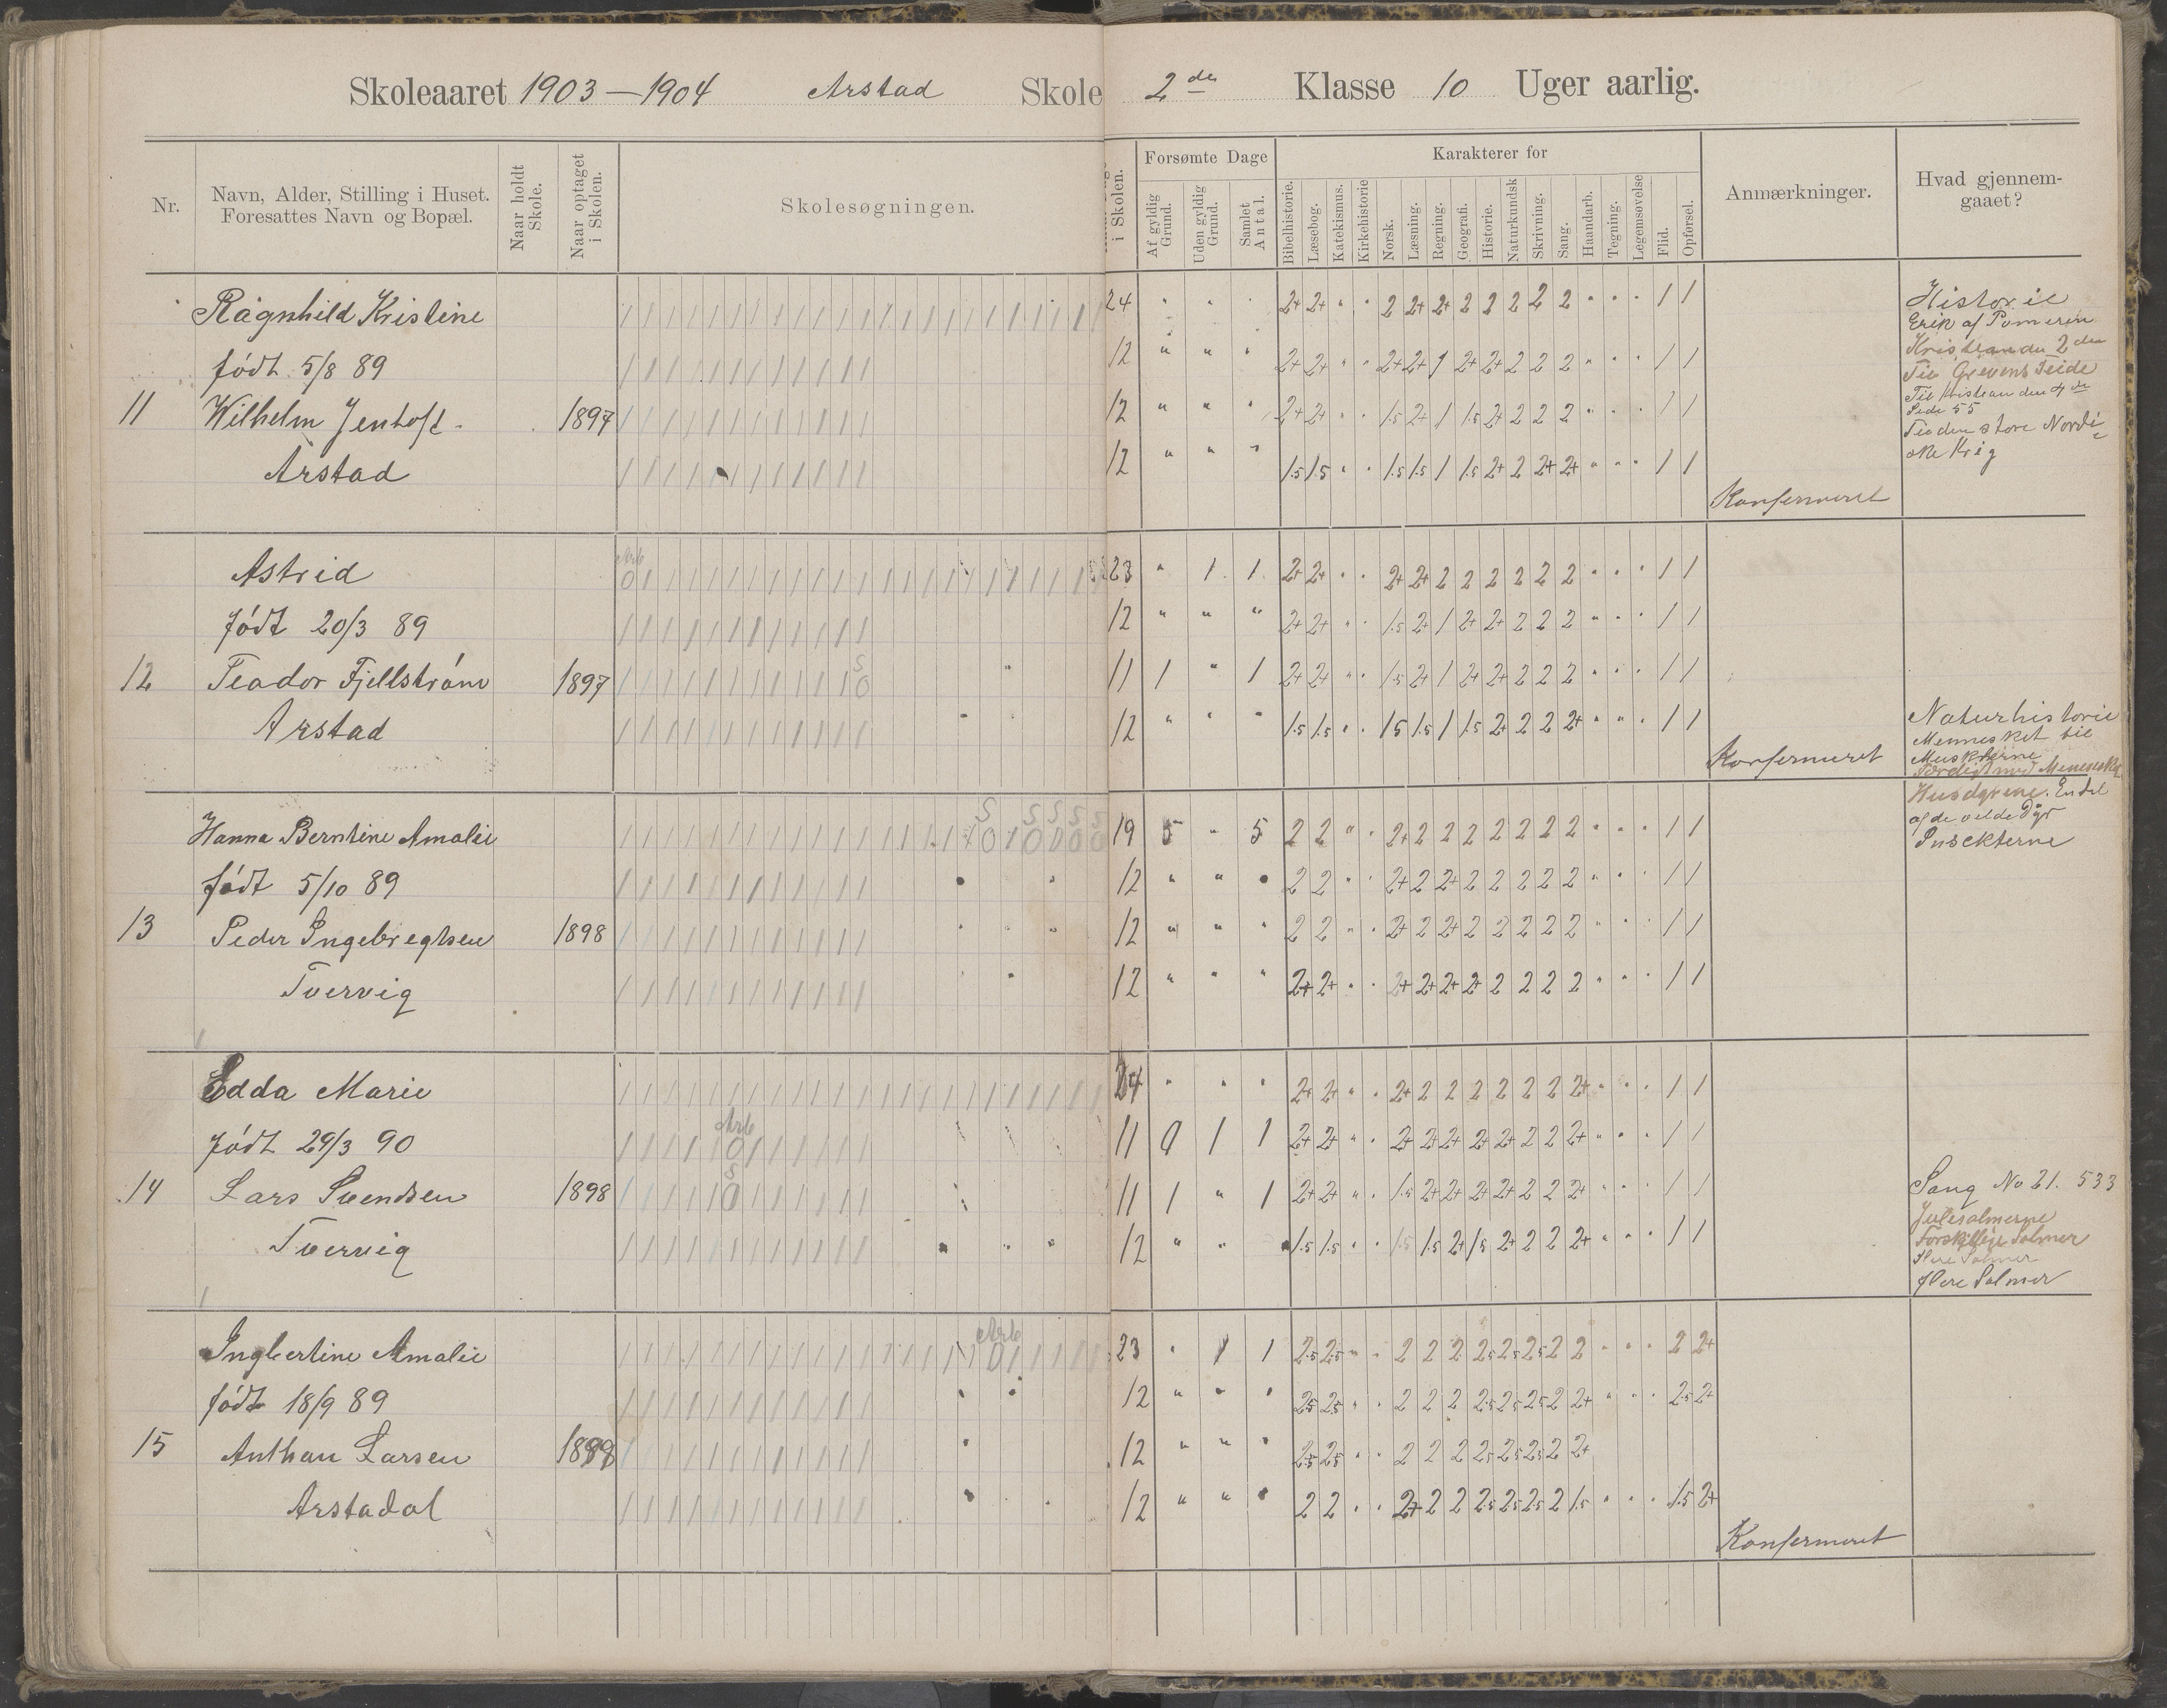 Skoleaaret 1903—1904 Arstad Skole 2de Klasse 10 Uger aarlig.
Nr.
Navn, Alder, Stilling i Huset.
Foresattes Navn og Bopæl.
Naar holdt Skole.
Naar optaget i Skolen.
Skolesøgningen.
i Skolen.
Forsømte Dage
Af gyldig Grund.
Uden gyldig Grund.
Samlet Antal.
Karakterer for
Bibelhistorie.
Læsebog.
Katekismus.
Kirkehistorie
Norsk.
Læsning.
Regning.
Geografi.
Historie.
Naturkundsk
Skrivning.
Sang.
Haandarb.
Tegning.
Legemsøvelse
Flid.
Opførsel.
Anmærkninger.
Hvad gjennem-
gaaet?
Ragnhild Kristine 24 " " " 2+ 2+ " " 2 2+ 2+ 2 2 2 2 2 " " " 1 1
født 5/8 89 12 " " " 2+ 2+ " " 2+ 2+ 1 2+ 2+ 2 2 2 " " " 1 1
11 Wilhelm Jentoft. 1897 12 " " " 2+ 2+ " " 1.5 2+ 1 1.5 2+ 2 2 2 " " " 1 1
Arstad 12 " " " 1.5 1.5 " " 1.5 1.5 1 1.5 2+ 2 2+ 2+ " " " 1 1
Konfermeret
Historie
Erik af Pomeren
Kristian den 2den
Til Grevens Feide
Til Kristian den 4de
Side 55
Til den store Nordi
ske Krig
Astrid 23 " 1 1 2+ 2+ " " 2+ 2+ 2 2 2 2 2 2 " " " 1 1
født 20/3 89 12 " " " 2+ 2+ " " 1.5 2+ 1 2+ 2+ 2 2 2 " " " 1 1
12 Teador Fjellstrøm 1897 11 1 " 1 2+ 2+ " " 1.5 2+ 1 2+ 2+ 2 2 2 " " " 1 1
Arstad 12 " " " 1.5 1.5 " " 1.5 1.5 1 1.5 2+ 2 2 2+ " " " 1 1
Konfermeret
Naturhistorie
Mennesket til
Musklerne
Færdig med Mennesket
Husdyrene. En del
af de vilde Dyr
Insekterne
Hanna Berntine Amalie 19 5 " 5 2 2 " " 2+ 2 2 2 2 2 2 2 " " " 1 1
født 5/10 89 12 " " " 2 2 " " 2+ 2 2+ 2 2 2 2 2 " " " 1 1
13 Peder Ingebregtsen 1898 12 " " " 2 2 " " 2+ 2 2+ 2 2 2 2 2 " " " 1 1
Tvervig 12 " " " 2+ 2+ " " 2+ 2+ 2+ 2+ 2 2 2 2 " " " 1 1
Edda Marie 24 " " " 2+ 2+ " " 2+ 2 2 2 2 2 2 2+ " " " 1 1
født 29/3 90 11 0 1 1 2+ 2+ " " 2+ 2+ 2+ 2+ 2+ 2 2 2+ " " " 1 1
14 Lars Svendsen 1898 11 1 " 1 2+ 2+ " " 1.5 2+ 2+ 2+ 2+ 2 2 2+ " " " 1 1
Tvervig 12 " " " 1.5 1.5 " " 1.5 1.5 2+ 1.5 2+ 2 2 2+ " " " 1 1
Sang No 21. 533
Julesalmerne
Forskjellige Salmer
flere Salmer
flere Salmer
Ingbertine Amalie 23 " 1 1 2.5 2.5 " " 2 2 2 2.5 2.5 2.5 2 2 " " " 2 2+
født 18/9 89 12 " " " 2.5 2.5 " " 2 2 2 2.5 2.5 2.5 2 2+ " " " 2.5 2+
15 Anthan Larsen 1898 12 " " " 2.5 2.5 " " 2 2 2 2.5 2.5 2.5 2 2+
Arstadal 12 " " " 2 2 " " 2+ 2 2 2.5 2.5 2.5 2 1.5 " " " 1.5 2+
Konfermeret